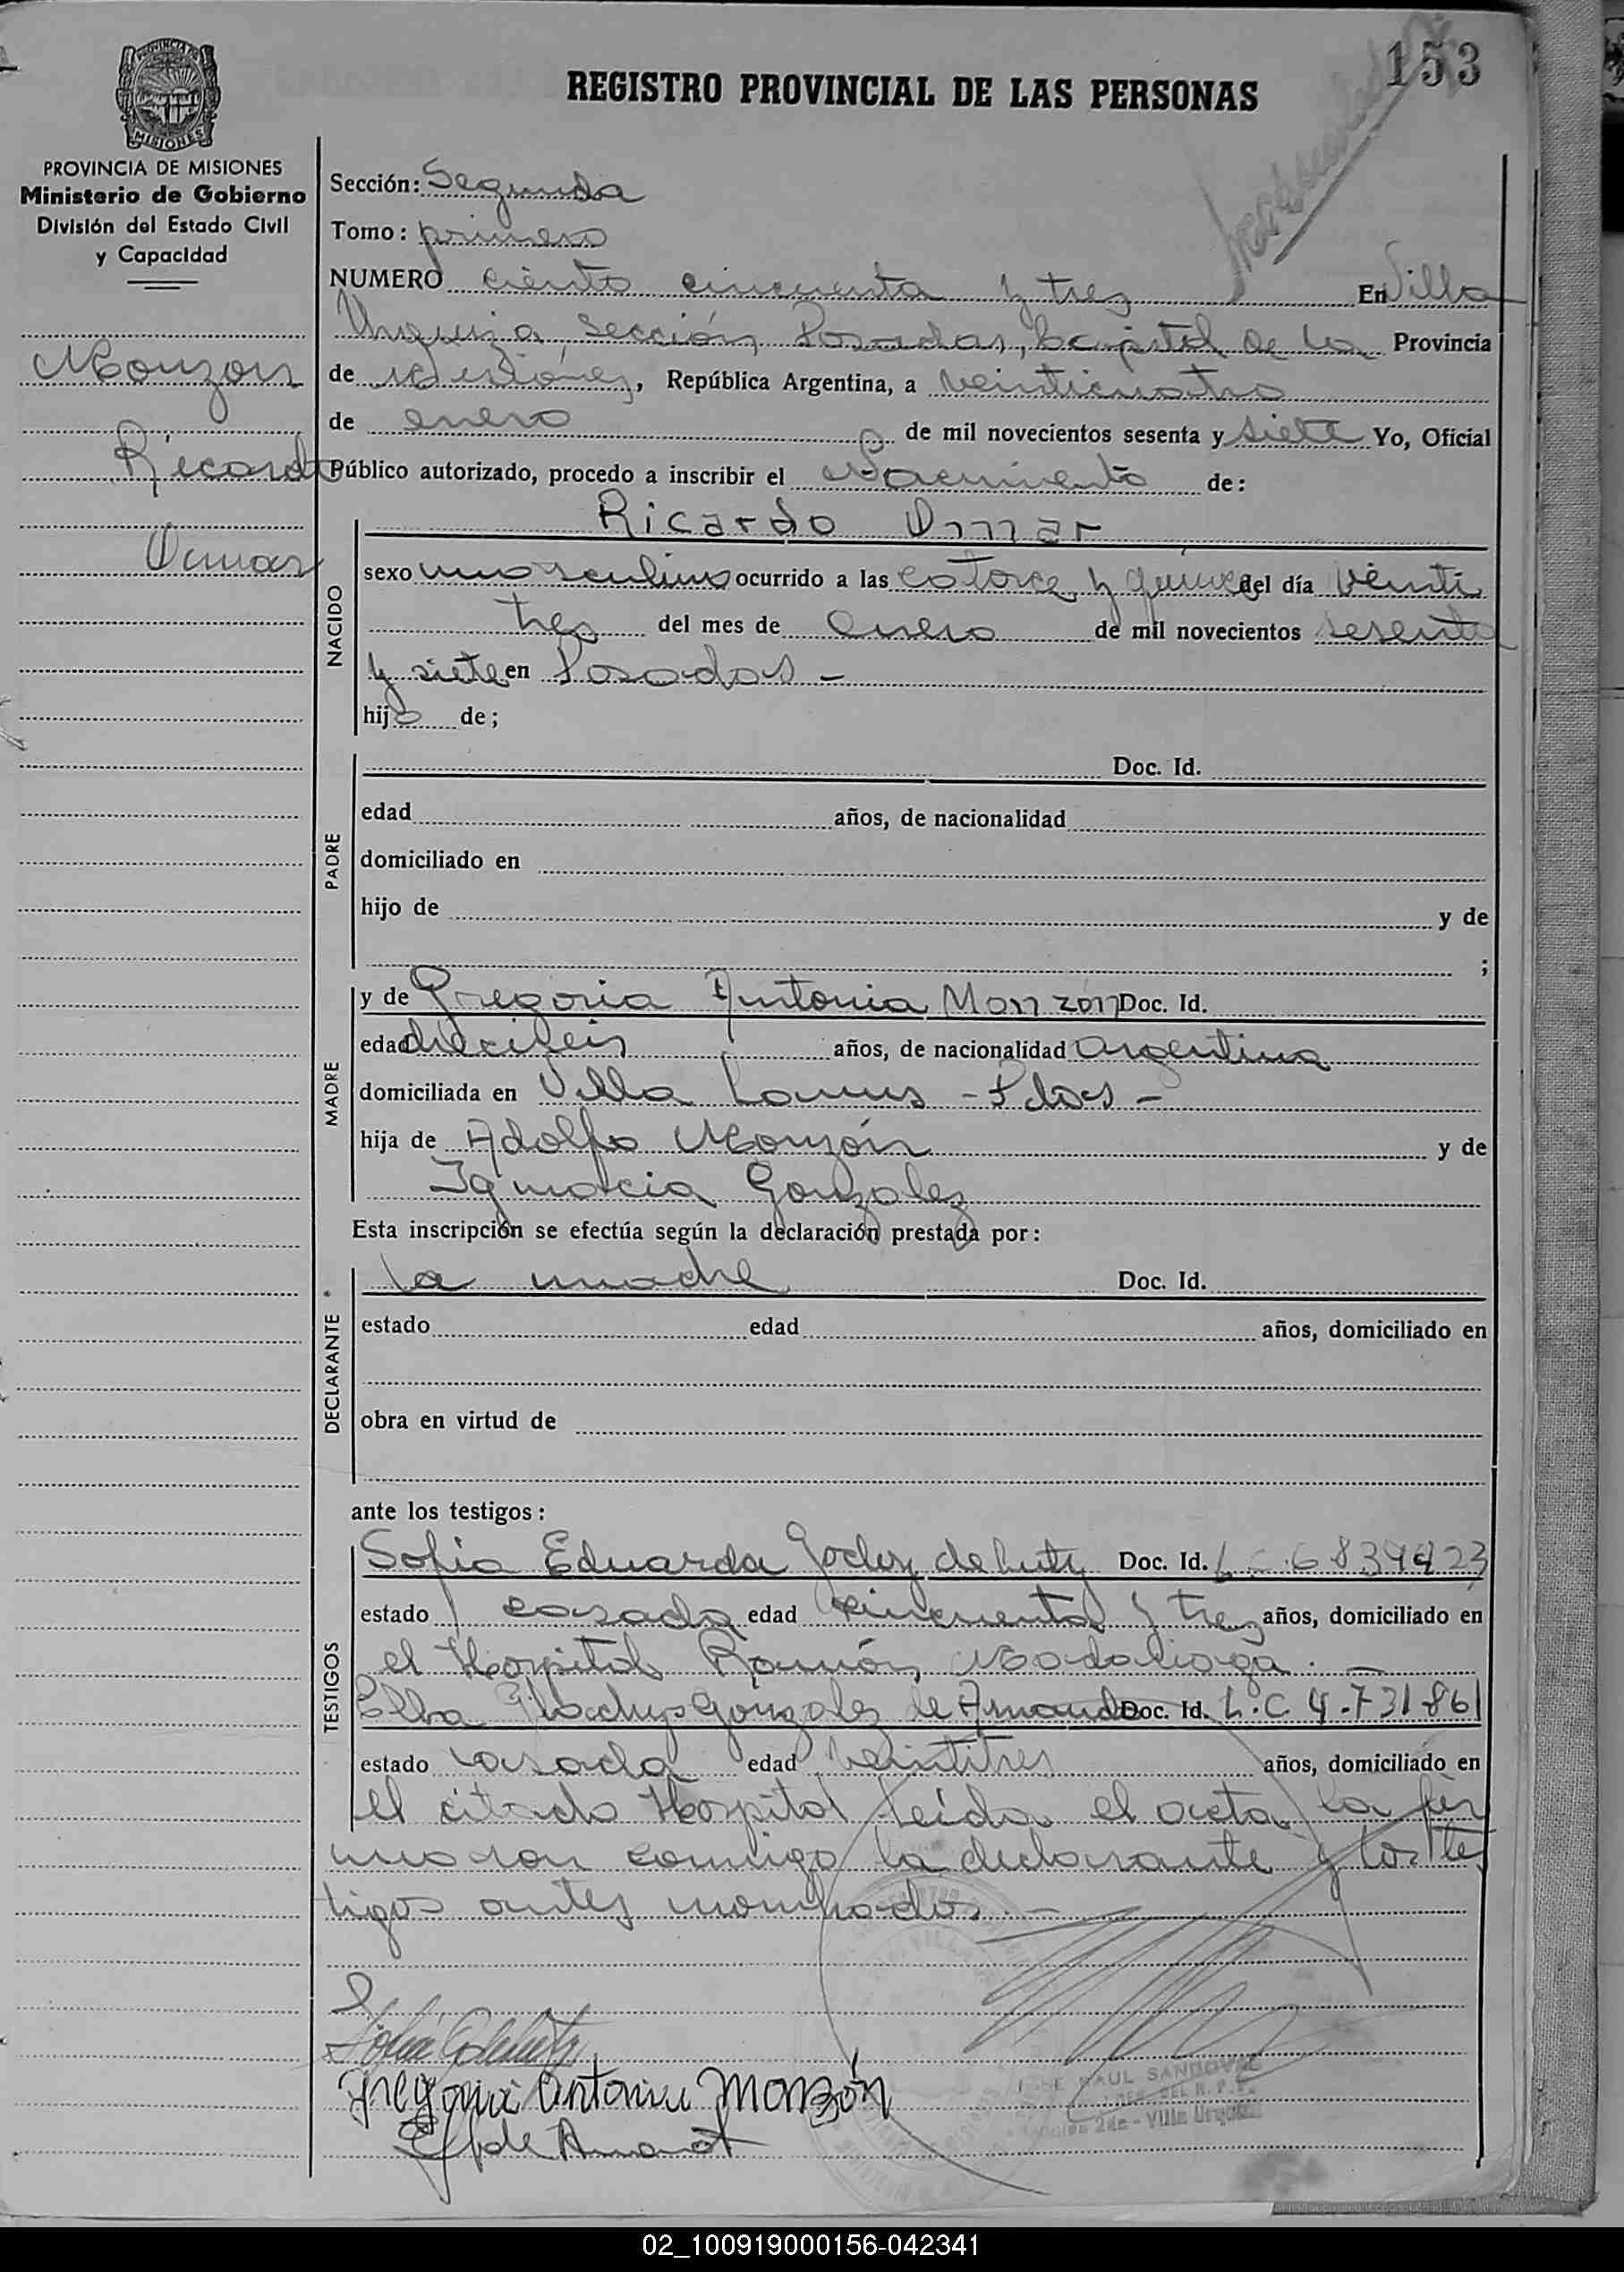 153
REGISTRO PROVINCIAL DE LAS PERSONAS
PROVINCIA DE MISIONES
Ministerio de Gobierno
División del Estado Civil
y Capacidad
Monzon
Ricardo
Omar
Sección: Segunda
Tomo: primero
NUMERO ciento cincuenta y tres En Villa
Urquiza, sección Posadas, Capital de la Provincia
de Misiones, República Argentina, a veinticuatro
de enero de mil novecientos sesenta y siete Yo, Oficial
Público autorizado, procedo a inscribir el Nacimiento de:
NACIDO
Ricardo Omar
sexo masculino ocurrido a las catorce y quince del día veinti
tres del mes de enero de mil novecientos sesenta
y siete en Posadas -
hijo de;
PADRE
Doc. Id.
edad años, de nacionalidad
domiciliado en
hijo de y de
;
MADRE
y de Gregoria Antonia Monzón Doc. Id.
edad dieciseis años, de nacionalidad Argentina
domiciliada en Villa Lanus - Pdas -
hija de Adolfo Monzón y de
Ignacia Gonzalez
Esta inscripción se efectúa según la declaración prestada por:
DECLARANTE
la madre Doc. Id.
estado edad años, domiciliado en
obra en virtud de
ante los testigos:
TESTIGOS
Sofia Eduarda Godoy de Doc. Id. L.C. 6839423
estado casada edad cincuenta y tres años, domiciliado en
el Hospital Ramón Madariaga. -
Elba Gonzalez de Doc. Id. L.C 4.731861
estado casada edad veintitres años, domiciliado en
el citado Hospital leida el acta la fir
maron conmigo la declarante y los tes
tigos antes nombrados. -
Gregoria Antonia Monzón
JOSE RAUL SANDOVAL
DEL R. P. P.
2da - Villa Urquiza
02_100919000156-042341